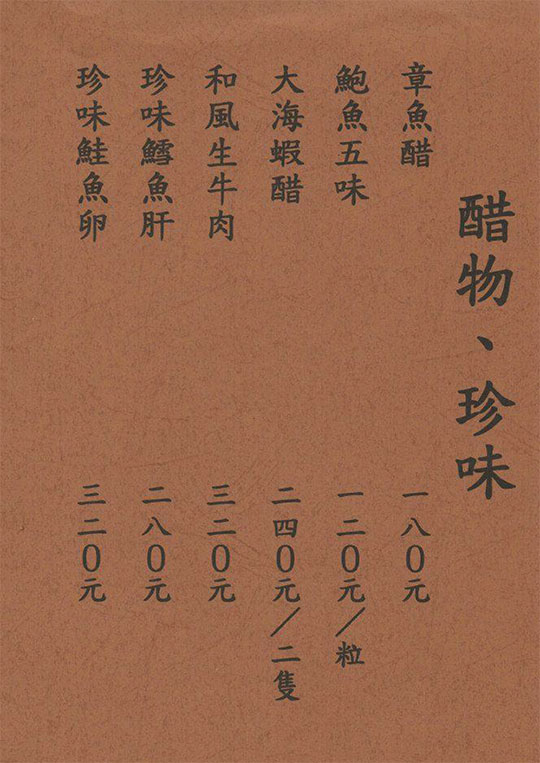 醋物、珍味
章魚醋 一八0元
鮑魚五味 一二0元／粒
大海蝦醋 二四0元／二隻
和風生牛肉 三二0元
珍味鱈魚肝 二八0元
珍味鮭魚卵 三二0元